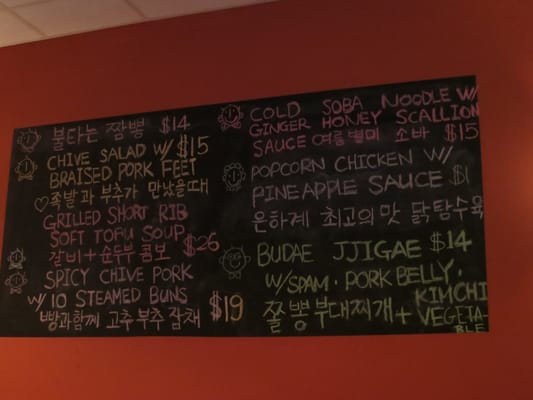 불타는 짬뽕 $14
CHIVE SALAD W/ $15
BRAISED PORK FEET
♡족발과 부추가 만났을때
GRILLED SHORT RIB
SOFT TOFU SOUP $26
갈비+순두부 콤보
SPICY CHIVE PORK
W/ 10 STEAMED BUNS $19
빵과함께 고추부추잡채
COLD SOBA NOODLE W/
GINGER HONEY SCALLION
SAUCE 여름별미 소바 $15
POPCORN CHICKEN W/
PINEAPPLE SAUCE
은하계 최고의 맛 닭탕수육
BUDAE JJIGAE $14
W/ SPAM, PORK BELLY,
쫄뽕부대찌개+ KIMCHI
VEGETA-
BLE